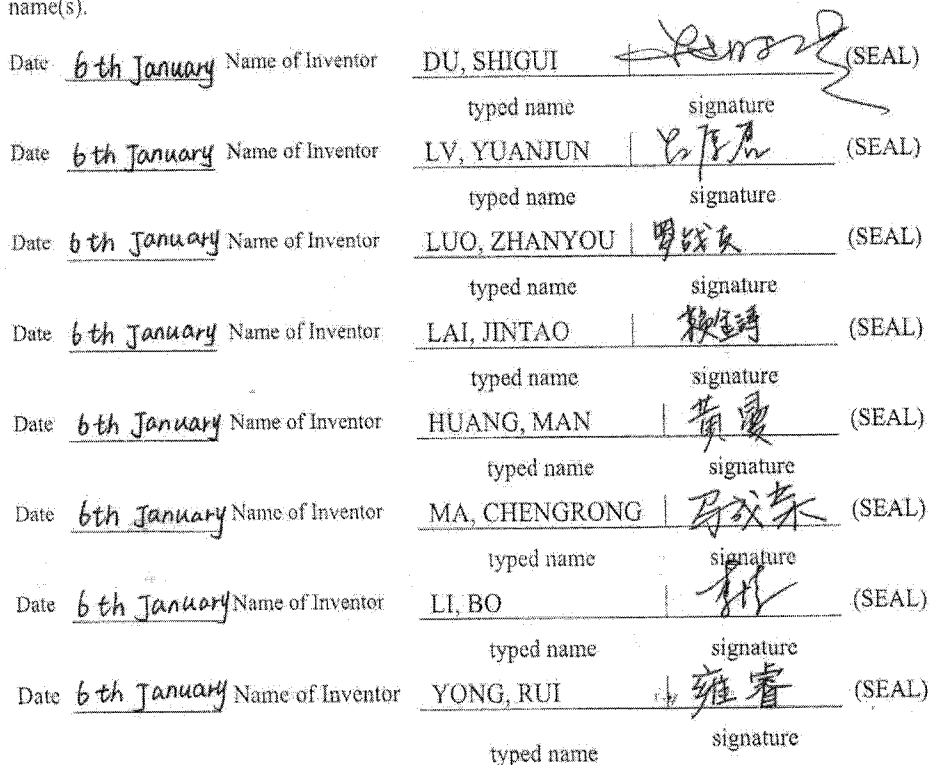 name(s).
Date 6th January Name of Inventor DU, SHIGUI (SEAL)
typed name signature
Date 6th January Name of Inventor LV, YUANJUN (SEAL)
typed name signature
Date 6th January Name of Inventor LUO, ZHANYOU 罗战友 (SEAL)
typed name signature
Date 6th January Name of Inventor LAI, JINTAO (SEAL)
typed name signature
Date 6th January Name of Inventor HUANG, MAN 黄曼 (SEAL)
typed name signature
Date 6th January Name of Inventor MA, CHENGRONG 马成荣 (SEAL)
typed name signature
Date 6th January Name of Inventor LI, BO (SEAL)
typed name signature
Date 6th January Name of Inventor YONG, RUI 雍睿 (SEAL)
typed name signature